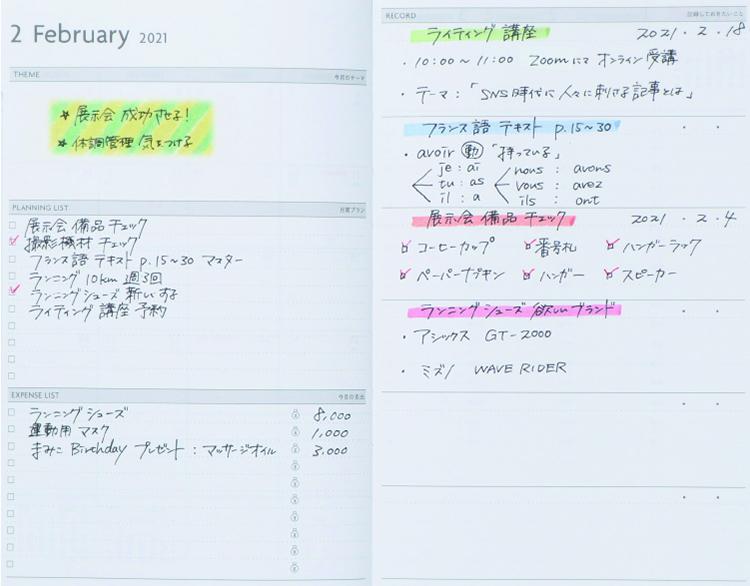 2 February 2021
THEME 今月のテーマ
★ 展示会 成功させる!
★ 体調管理 気をつける
PLANNING LIST 月間プラン
展示会 備品 チェック
撮影機材 チェック
フランス語 テキスト p.15~30 マスター
ランニング 10km 週3回
ランニングシューズ 新しいする
ライティング 講座 予約
EXPENSE LIST 今月の支出
ランニングシューズ 8,000
運動用 マスク 1,000
まみこ Birthday プレゼント : マッサージオイル 3,000
RECORD 記録しておきたいこと
ライティング 講座 2021 . 2 . 18
・ 10:00 ~ 11:00 Zoomにて オンライン 受講
・ テーマ : 「SNS時代に 人々に刺さる 記事とは」
フランス語 テキスト p.15~30
・ avoir 動 「持っている」
je : ai nous : avons
tu : as vous : avez
il : a ils : ont
展示会 備品 チェック 2021 . 2 . 4
コーヒーカップ 番号札 ハンガーラック
ペーパーナプキン ハンガー スピーカー
ランニングシューズ 欲しいブランド
・ アシックス GT-2000
・ ミズノ WAVE RIDER